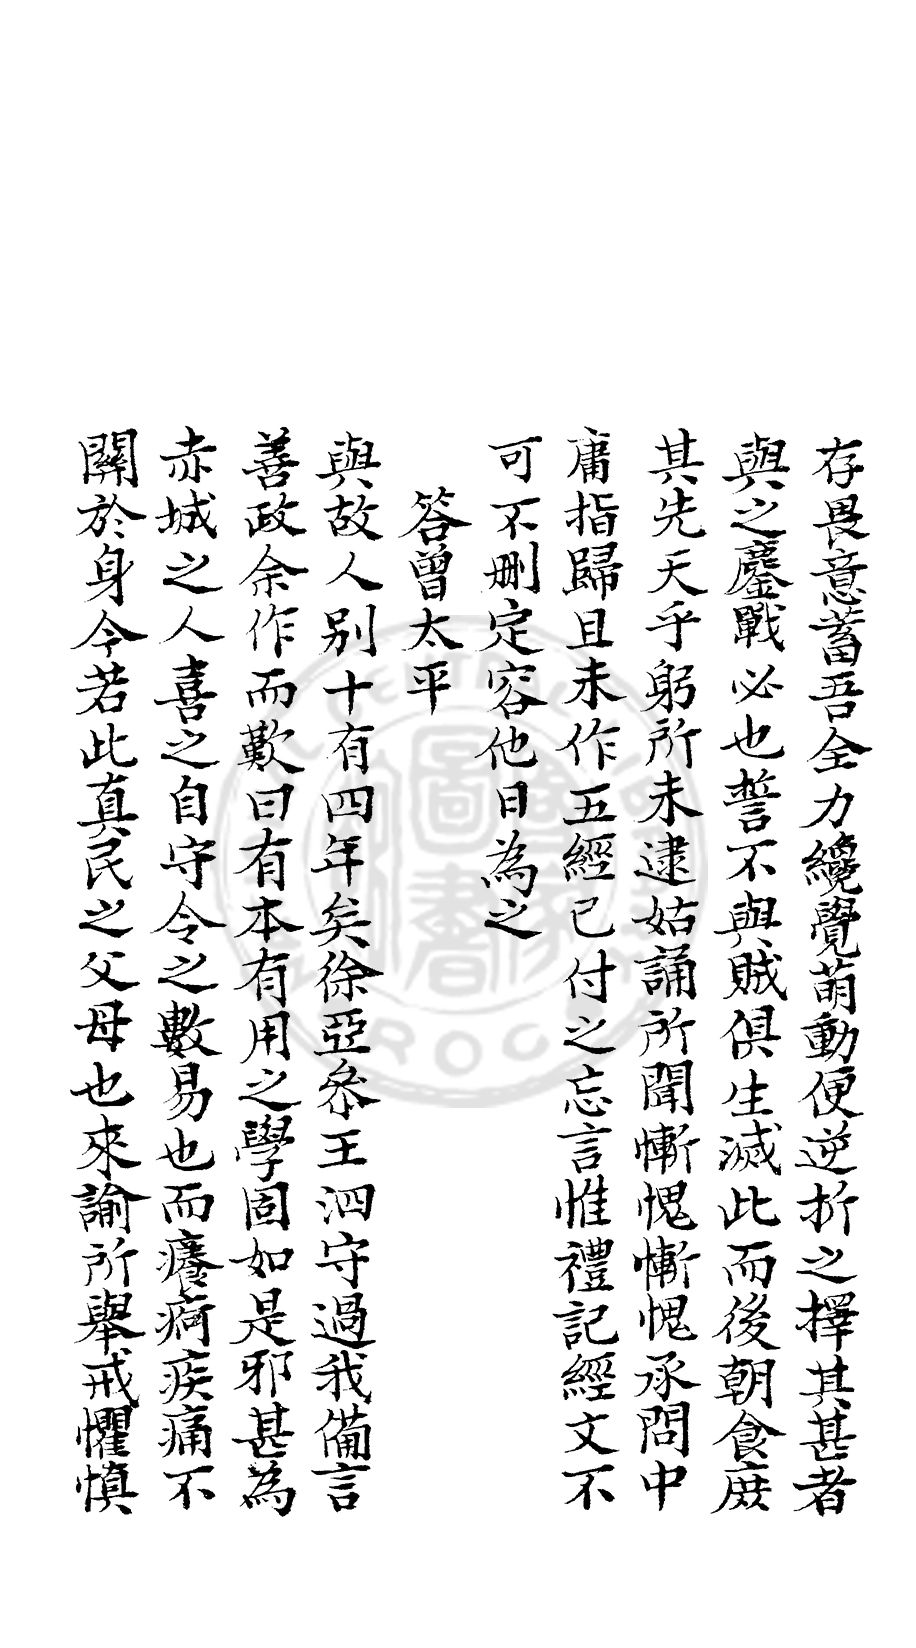 存畏意蓄吾全力纔覺萌動便逆折之擇其甚者
與之鏖戰必也誓不與賊俱生滅此而後朝食庶
其先天乎躬所未逮姑誦所聞慚愧慚愧承問中
庸指歸且未作五經已付之忘言惟禮記經文不
可不刪定容他日為之
答曾太平
與故人别十有四年矣徐亞叅王泗守過我備言
善政余作而歎曰有本有用之學固如是邪甚為
赤城之人喜之自守令之數易也而癢疴疾痛不
關於身今若此真民之父母也來諭所舉戒懼慎